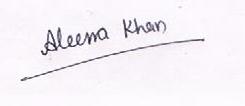 Aleena Khan